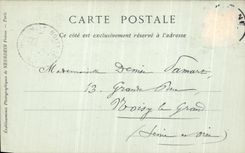 CARTE POSTALE
Ce côté est exclusivement réservé à l'adresse
Mademoiselle Denise Tamart
13. Grande Rue
Noisy le Grand
(Seine et Oise)
Établissements Photographiques de NEURDEIN Frères - Paris